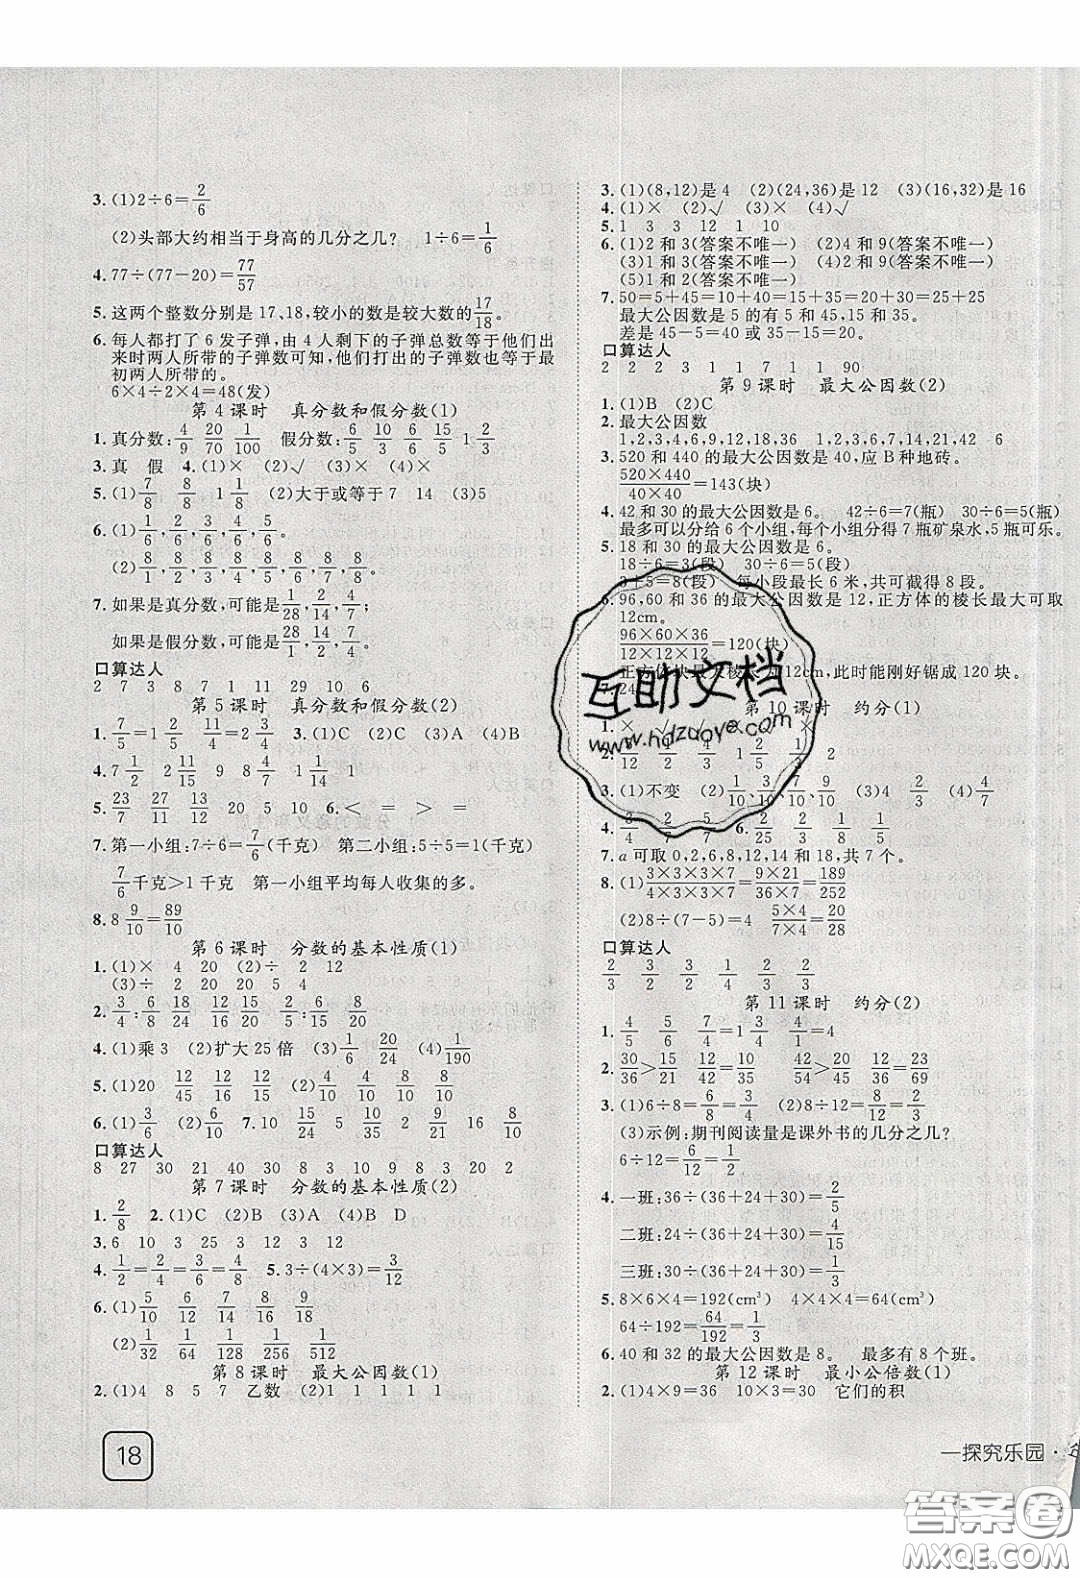 3. (1)2÷6=2/6
(2)头部大约相当于身高的几分之几? 1÷6=1/6
4. 77÷(77-20)=77/57
5. 这两个整数分别是17、18,较小的数是较大数的17/18。
6. 每人都打了6发子弹,由4人剩下的子弹总数等于他们出
来时两人所带的子弹数可知,他们打出的子弹数也等于
最初两人所带的。
6×4÷2×4=48(发)
第4课时 真分数和假分数(1)
1. 真分数:4/9 20/70 1/100 假分数:6/5 10/10 6/6 15/15 1 2/3
3. 真 假 4. (1)× (2)√ (3)× (4)×
5. (1)7/8 8/8 1 1/8 (2)大于或等于7 14 (3)5
6. (1)1/6,2/6,3/6,4/6,5/6
(2)1/8,2/8,3/8,4/8,5/8,6/8,7/8,8/8
7. 如果是真分数,可能是1/28,2/14,4/7;
如果是假分数,可能是28/1,14/2,7/4。
口算达人
2 7 3 8 7 1 11 29 10 6
第5课时 真分数和假分数(2)
1. 7/5=1 2/5 11/4=2 3/4 3. (1)C (2)C (3)A (4)B
4. 7 1/2 2 2/5 1 1/14 1
5. 23/27 17/11 12/20 20 5 10 6. < = > =
7. 第一小组:7÷6=7/6(千克) 第二小组:5÷5=1(千克)
7/6千克>1千克 第一小组平均每人收集的多。
8. 8 9/10=89/10
第6课时 分数的基本性质(1)
1. (1)× 4 20 (2)÷ 2 12
(3)÷ 2 20 20 5 4
2. 3/4=6/8 18/24=12/16 4/20=2/10 3. 5/6=10/12 8/18=4/9
4. (1)乘3 (2)扩大25倍 (3)1/6 20/24 (4)1/190
5. (1)20 12/45 12/16 12/15 (2)10 4/10 4/8 8/10
6. (1)3/6 2/6 (2)6/20 9/20 7. 10 2/10 9/21 16 8/10
口算达人
8 27 30 21 40 30 8 3 10 9 8 3 20 2
第7课时 分数的基本性质(2)
1. 2/8 2. (1)C (2)B (3)A (4)B D
3. 6 10 3 25 3 12 12
4. 1/2=2/4=3/6=4/8 5. 3÷(4×3)=3/12
6. (1)5/10 6/12 7/14 8/16 9/18
(2)1/32 1/64 1/128 1/256 1/512
第8课时 最大公因数(1)
2. (1)4 8 5 7 乙数 (2)1 1 1 1
18
3. (1)(8,12)是4 (2)(24,36)是12 (3)(16,32)是16
4. (1)× (2)√ (3)× (4)√
5. 1 3 3 12 1 10
6. (1)2和3(答案不唯一) (2)4和9(答案不唯一)
(3)1和2(答案不唯一) (4)8和9(答案不唯一)
(5)1和2(答案不唯一)
7. 50=5+45=10+40=15+35=20+30=25+25
最大公因数是5的有5和45,15和35。
差是45-5=40或35-15=20。
口算达人
2 2 2 3 1 1 7 1 1 90
第9课时 最大公因数(2)
1. (1)B (2)C
2. 最大公因数
1,2,3,4,6,9,12,18,36 1,2,3,6,7,14,21,42 6
3. 520和440的最大公因数是40,应B种地砖。
520×440/40×40=143(块)
4. 42和30的最大公因数是6。 42÷6=7(瓶) 30÷6=5(瓶)
最多可以分给6个小组,每个小组分得7瓶矿泉水,5瓶可乐。
5. 18和30的最大公因数是6。
18÷6=3(段) 30÷6=5(段)
3+5=8(段) 每小段最长6米,共可截得8段。
6. 96,60和36的最大公因数是12,正方体的棱长最大可取
12cm。
96×60×36/12×12×12=120(块)
正方体块最大棱长为12cm,此时能刚好锯成120块。
7. 24
第10课时 约分(1)
3. (1)不变 (2)1/10,3/10,7/10,9/10 (3)4 2/3 4/9
7. a可取0,2,6,8,12,14和18,共7个。
8. (1)3×3×3×7/4×3×3×7=9×21/36×7=189/252
(2)8÷(7-5)=4 5×4/7×4=20/28
口算达人
2/3 3/4 3/2 1/4 2/3 2/3
第11课时 约分(2)
1. 4/5 5/6 7/4=1 3/4 12/3=4
2. 30/36>21/36 15/25=9/15 4/14<8/21 22/23=66/69
3. (1)6÷8=6/8=3/4 (2)8÷12=8/12=2/3
(3)示例:期刊阅读量是课外书的几分之几?
6÷12=6/12=1/2
4. 一班:36÷(36+24+30)=2/5
二班:24÷(36+24+30)=4/15
三班:30÷(36+24+30)=1/3
5. 8×6×4=192(cm³) 4×4×4=64(cm³)
64÷192=64/192=1/3
6. 40和32的最大公因数是8。 最多有8个班。
第12课时 最小公倍数(1)
2. (1)4×9=36 10×3=30 它们的积
一探究乐园·
互助文档
www.hdzuoye.com
答案圈
MXQE.COM